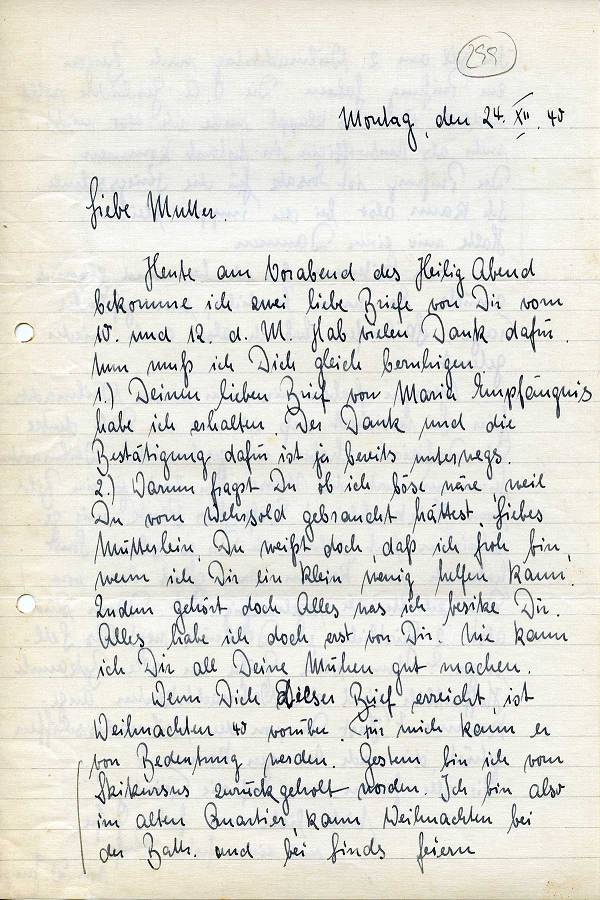 299
Montag, den 24. XII. 40
Liebe Mutter.
Heute am Vorabend des Heilig Abend
bekomme ich zwei liebe Briefe von Dir vom
10. und 12. d. M. Hab vielen Dank dafür.
Nun muß ich Dich gleich beruhigen.
1.) Deinen lieben Brief von Maria Empfängnis
habe ich erhalten Der Dank und die
Bestätigung dafür ist ja bereits unterwegs.
2.) Warum fragst Du ob ich böse wäre, weil
Du vom Wehrsold gebraucht hättest. Liebes
Mütterlein, Du weißt doch, daß ich froh bin,
wenn ich Dir ein klein wenig helfen kann.
Zudem gehört doch Alles was ich besitze Dir.
Alles habe ich doch erst von Dir. Nie kann
ich Dir all Deine Mühen gut machen.
Wenn Dich dieser Brief erreicht, ist
Weihnachten 40 vorüber. Für mich kann er
von Bedeutung werden. Gestern bin ich vom
Skikursus zurückgeholt worden. Ich bin also
im alten Quartier, kann Weihnachten bei
der Battr. und bei feiern